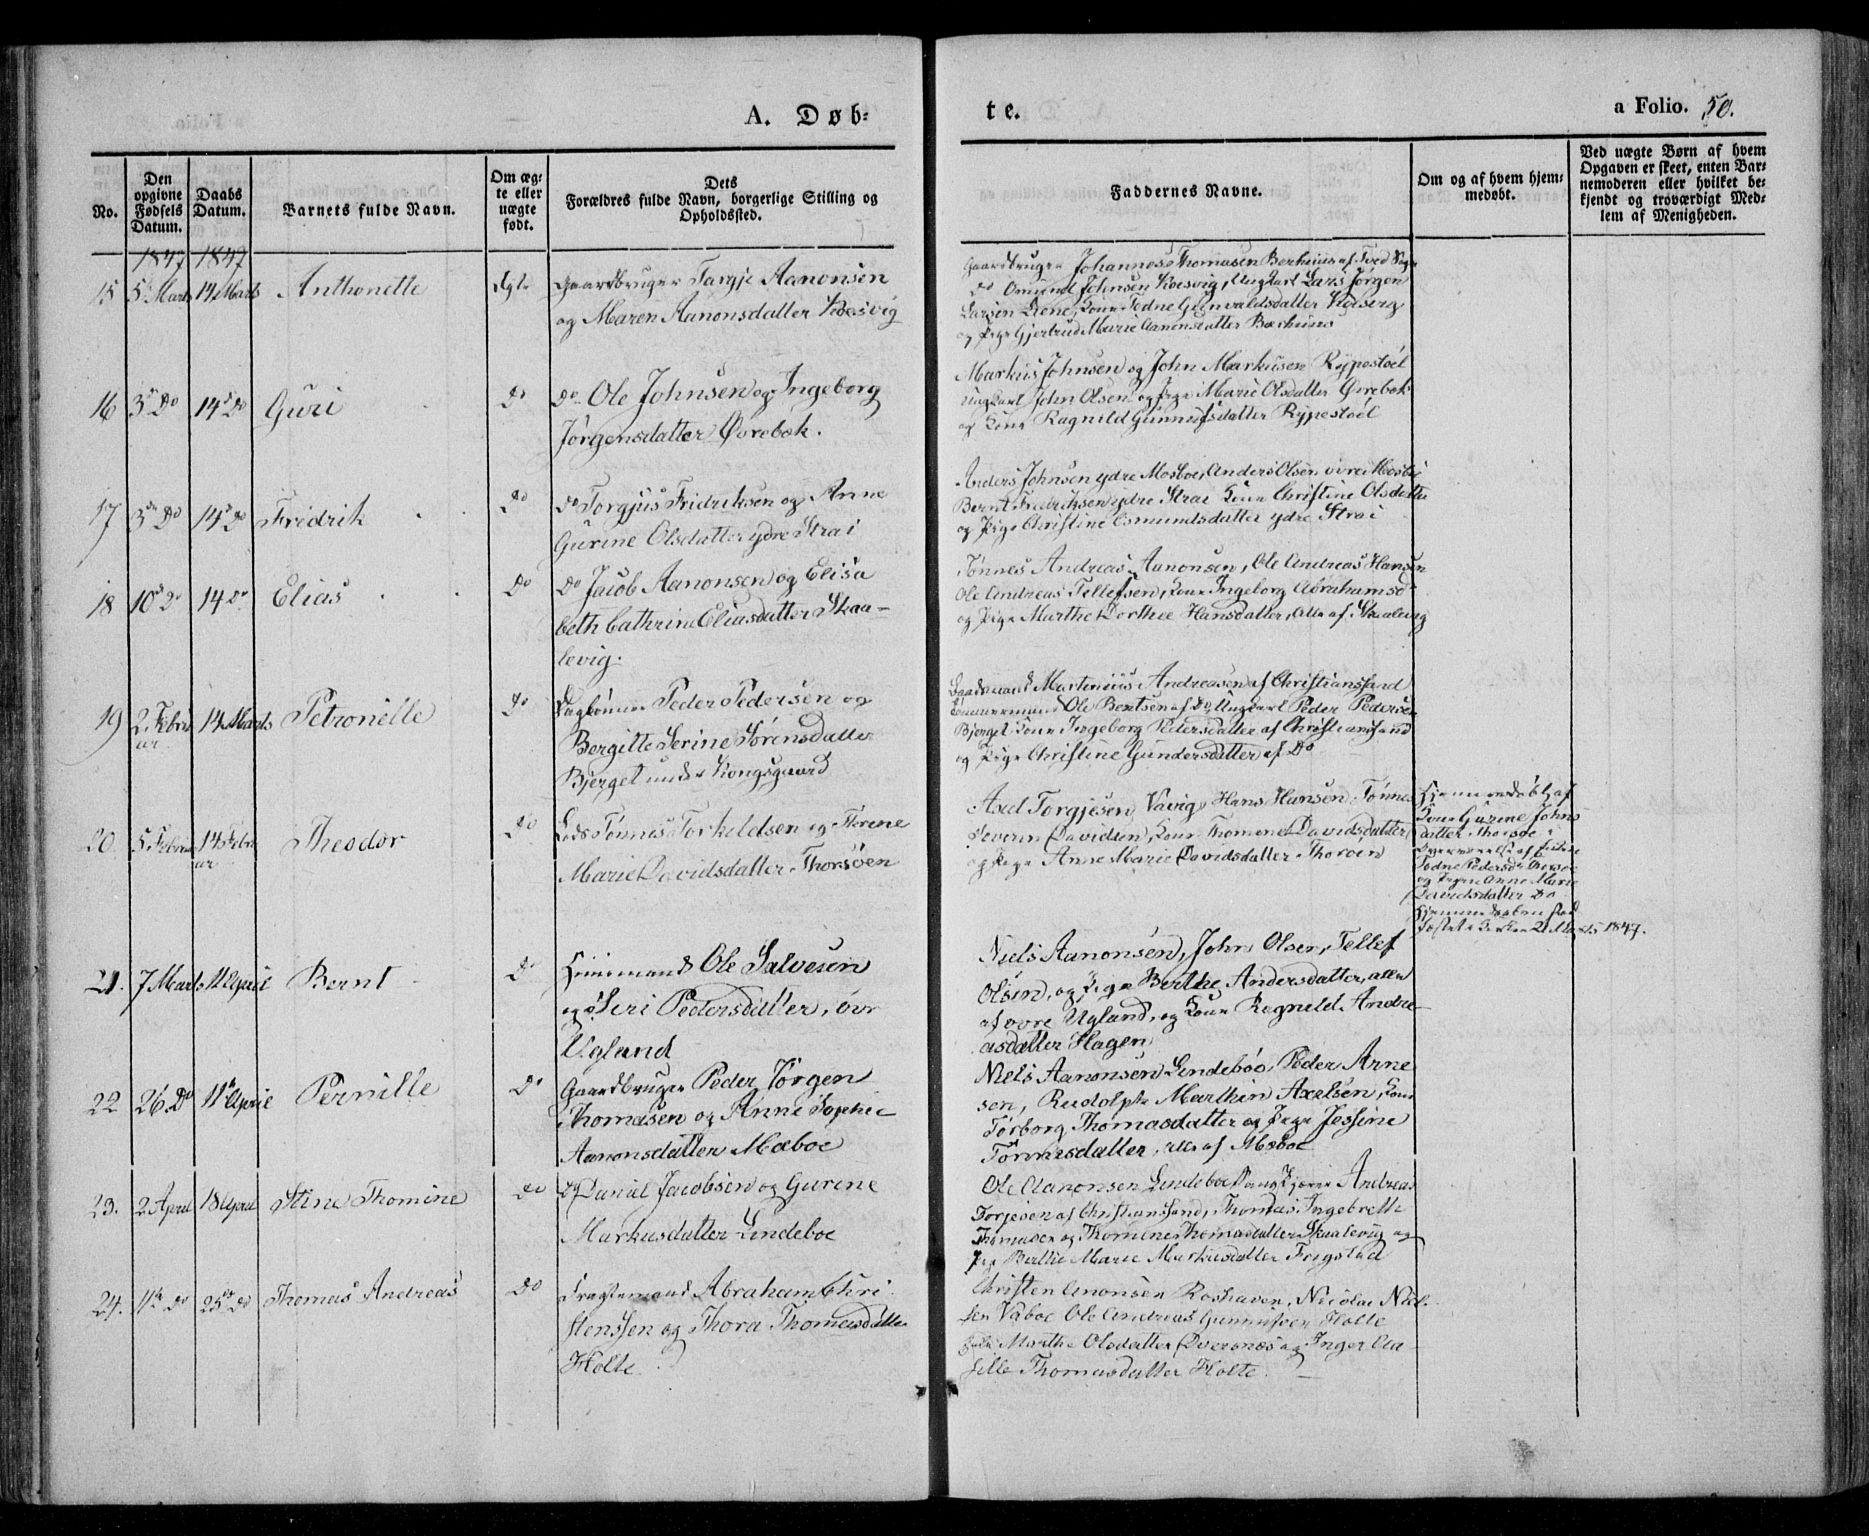 A. Døb-
te.
a Folio. 50.
No.
Den opgivne Fødsels Datum.
Daabs Datum.
Barnets fulde Navn.
Om ægte eller uægte født.
Dets Forældres fulde Navn, borgerlige Stilling og Opholdssted.
Faddernes Navne.
Om og af hvem hjemmedøbt.
Ved uægte Børn af hvem Opgaven er skeet, enten Barnemoderen eller hvilket bekjendt og troværdigt Medlem af Menigheden.
1847 1847
15 5 Marts 14 Marts Anthonette Ægte Gaardbruger Targje Aanonsen
og Maren Aanonsdatter Koesvig
Gaardbruger Johannes Thomasen Berhuus af
Do Omund Johnsen Koesvig, Ungkarl Lars Jørgen
Larsen Kone Tedne Gunvaldsdatter Koesvig
og Pige Gjertrud Marie Aanonsdatter
16 3 Do 14 Do Guri Do Do Ole Johnsen og Ingeborg
Jørgensdatter Øvrebøk.
Markus Johnsen og John Markusen Rypestøl
Ungkarl John Olsen og Pige Marie Olsdatter Øvrebøk
og Kone Ragnild Gunnufsdatter Rypestøl
17 3 Do 14 Do Fridrik Do Do Torgjus Fridriksen og Anne
Gurine Olsdatter ydre Strai
Anders Johnsen ydre Mosboe, Anders Olsen øvre
Bernt Fredriksen ydre Strai Kone Christine Olsdatter
og Pige Christine Osmundsdatter ydre Strai
18 10 Do 14 Do Elias Do Do Jacob Aanonsen og Elisa
beth Cathrine Eliasdatter Skaa-
levig.
Tønnes Andreas Aanonsen, Ole Andreas Hansen
Ole Andreas Tellefsen, Kone Ingeborg Abrahamsd
og Pige Marthe Dorthee Hansdatter, alle af Skaalevig
19 2 Februar 14 Marts Petronelle Do Peder Pedersen og
Bergitte Serine Sørensdatter
Bjerget under Kongsgaard
Martinius Andreasen af Christianssand
Ole Bentsen af Do, Ungkarl Peder Pedersen
Bjerget Kone Ingeborg Pedersdatter af Christianssand
og Pige Christine Gundersdatter af Do
20 5 Februar 14 Febr
uar Theodor Do Tønnes Torkildsen og Serene
Marie Davidsdatter Thorsøen
Axel Torgjesen Vavig, Hans Hansen, Tønnes
Severin Davidsen, Kone Thomene Davidsdatter
og Pige Anne Marie Davidsdatter Thorøen
Hjemmedøbt af
Kone Gurine Johns
datter Thorsøe i
Overværelse af
Tedne Pedersd Thorsøe
og Pigen Anne Marie
Davidsdatter Do
Hjemmedaaben stad
1847.
21. 7 Marts 11 April Bernt Do Huusmand Ole Salvesen
og Seri Pedersdatter, øvr
Ugland
Niels Aanonsen, John Olsen, Tellef
Olsen, og Pige Berthe Andersdatter, alle
af øvre Ugland, og Kone Regnild Andre
asdatter Hagen
22 26 Do 11 April Pernille Do Gaardbruger Peder Jørgen
Thomasen og Anne Sophie
Aanonsdatter Mæboe
Niels Aanonsen Lindeboe, Peder Arne
sen, Rudolph Marthin Axelsen, Kone
Torborg Thomasdatter og Pige Jessine
Tønnesdatter, alle af Mæboe
23. 2 April 18 April Stine Thomine Do Do Daniel Jacobsen og Gurine
Markusdatter Lindeboe
Ole Aanonsen Lindeboe Andreas
Torjesen af Christianssand, Thomas Ingebreth
Thomasen og Thomine Thomasdatter Skaalevig og
Pige Berthe Marie Markusdatter Frigstad
24. Do 25 Do Thomas Andreas Do Abraham Chri
stenssen og Thora Thomasdatter
Holte.
Christen Anonsen Roshaven, Nicolai Niel
sen Vaboe Ole Andreas Gunnufsen Holte
Marthe Olsdatter Qvernæs og Inger Aa
sille Thomasdatter Holte.